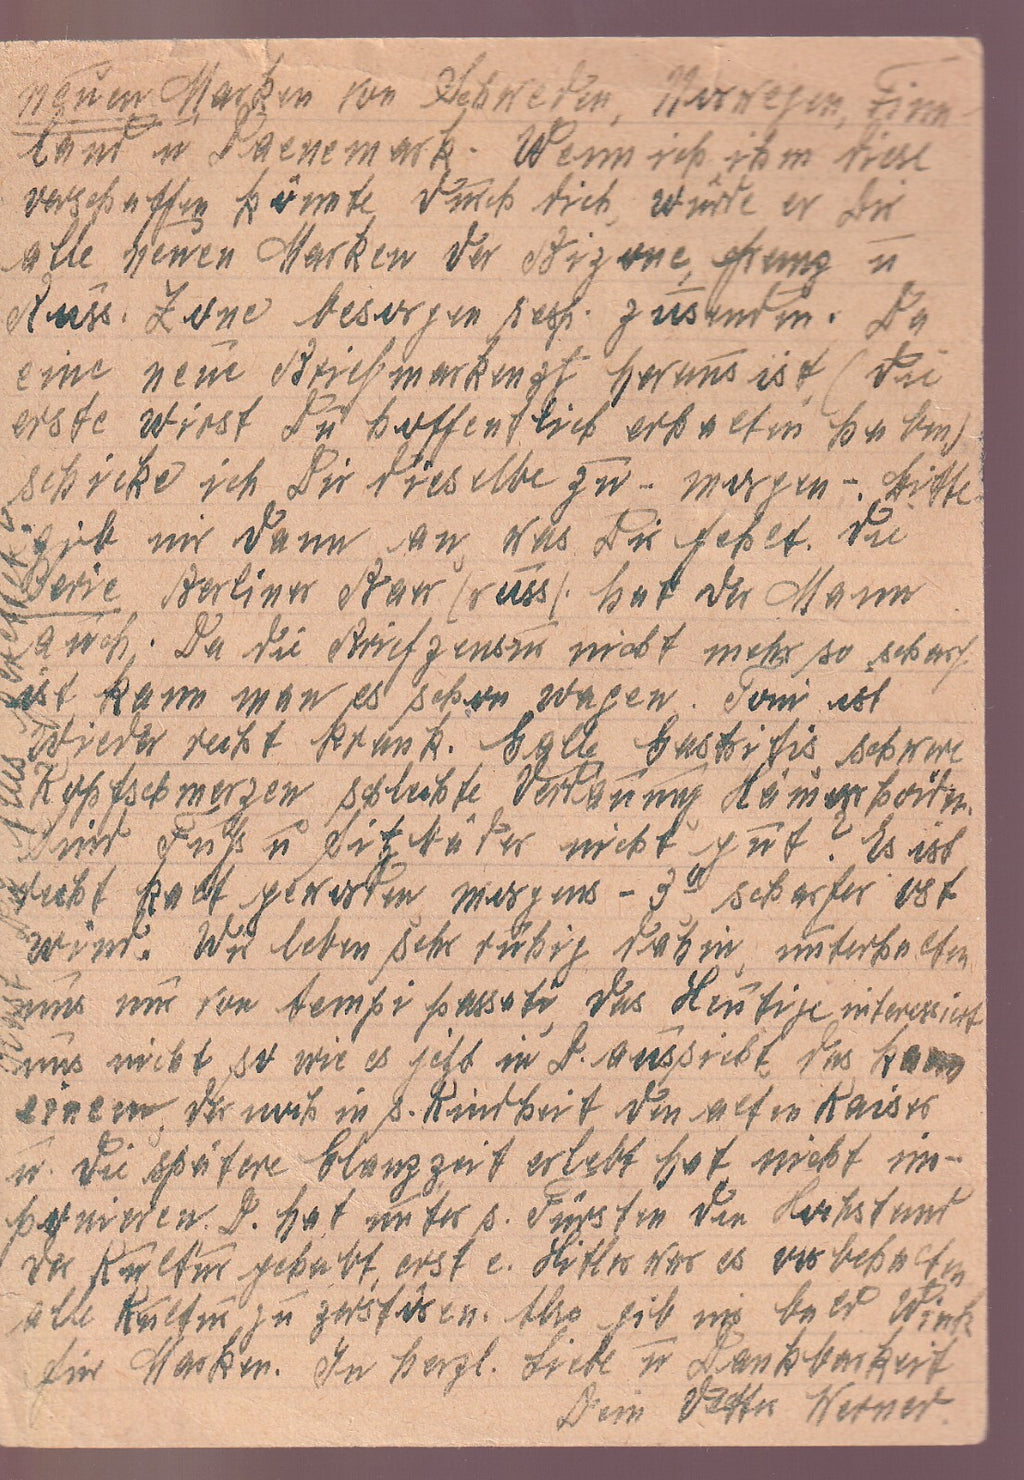 neuen Marken von Schweden, Norwegen, Finn-
land u Daenemark. Wenn ich ihm diese
verschaffen könnte durch dich, würde er Dir
alle neuen Marken der Bizone, franz u
Russ. Zone besorgen resp. zusenden. Da
eine neue Briefmarkenztg heraus ist, (die
erste wirst Du hoffentlich erhalten haben,)
schicke ich Dir dieselbe zu - morgen -. Bitte
gib mir dann an, was Dir fehlt. Die
Serie Berliner Baer (russ). hat der Mann
auch. Da die Briefzensur nicht mehr so scharf
ist kann man es schon wagen. Toni ist
wieder recht krank. Galle Gastritis schwere
Kopfschmerzen schlechte Verdauung Hämorrhoiden.
Sind Fuß u Sitzbäder nicht gut? Es ist
recht kalt geworden morgens - 3° scharfer Ost
wind. Wir leben sehr ruhig dahin, unterhalten
uns nur von tempi passati, das Heutige interessiert
uns nicht so wie es jetzt in D. aussieht, das kann
einem, der noch in s. Kindheit den alten Kaiser
u. die spätere Glanzzeit erlebt hat, nicht im-
ponieren. D. hat unter s. Fürsten den Höchststand
der Kultur gehabt, erst e. Hitler war es vorbehalten
alle Kultur zu zerstören. Also gib mir bald Wink
für Marken. In herzl. Liebe u Dankbarkeit
Dein Vetter Werner.